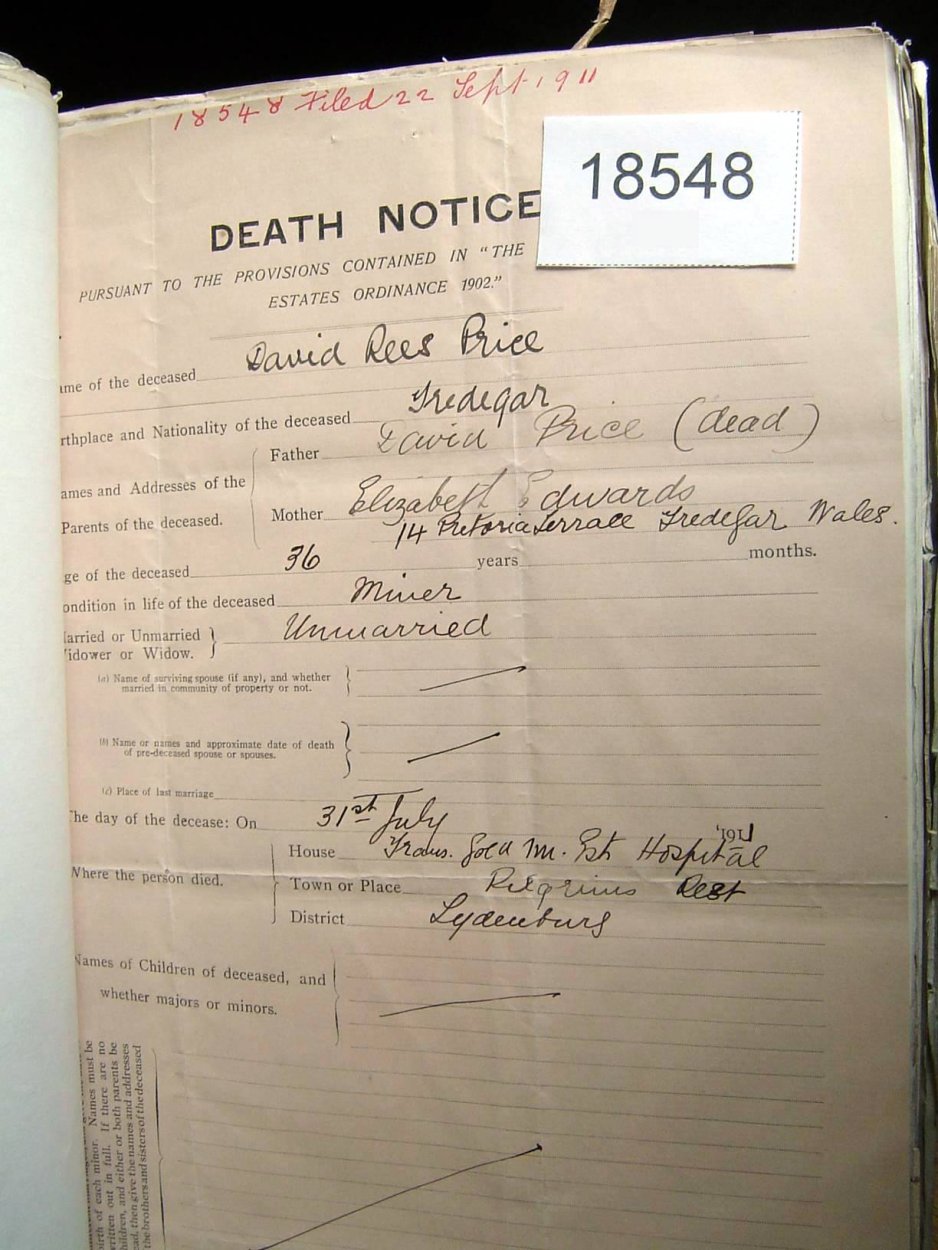 18548 Filed 22 Sept 1911
18548
DEATH NOTICE
PURSUANT TO THE PROVISIONS CONTAINED IN "THE
ESTATES ORDINANCE 1902."
ame of the deceased David Rees Price
rthplace and Nationality of the deceased Tredegar
Father David Price (dead)
ames and Addresses of the
Parents of the deceased.
Mother Elizabeth Edwards
14 Pretoria Terrace Tredegar Wales.
ge of the deceased 36 years months.
ondition in life of the deceased Miner
arried or Unmarried
idower or Widow. Unmarried
(a) Name of surviving spouse (if any), and whether
married in community of property or not.
(b) Name or names and approximate date of death
of pre-deceased spouse or spouses.
(c) Place of last marriage
The day of the decease: On 31st July 1911
House Trans. Gold M. Est. Hospital
Where the person died.
Town or Place Pilgrims Rest
District Lydenburg
Names of Children of deceased, and
whether majors or minors.
birth of each minor. Names must be
written out in full. If there are no
children, and either or both parents be
ad, then give the names and addresses
the brothers and sisters of the deceased